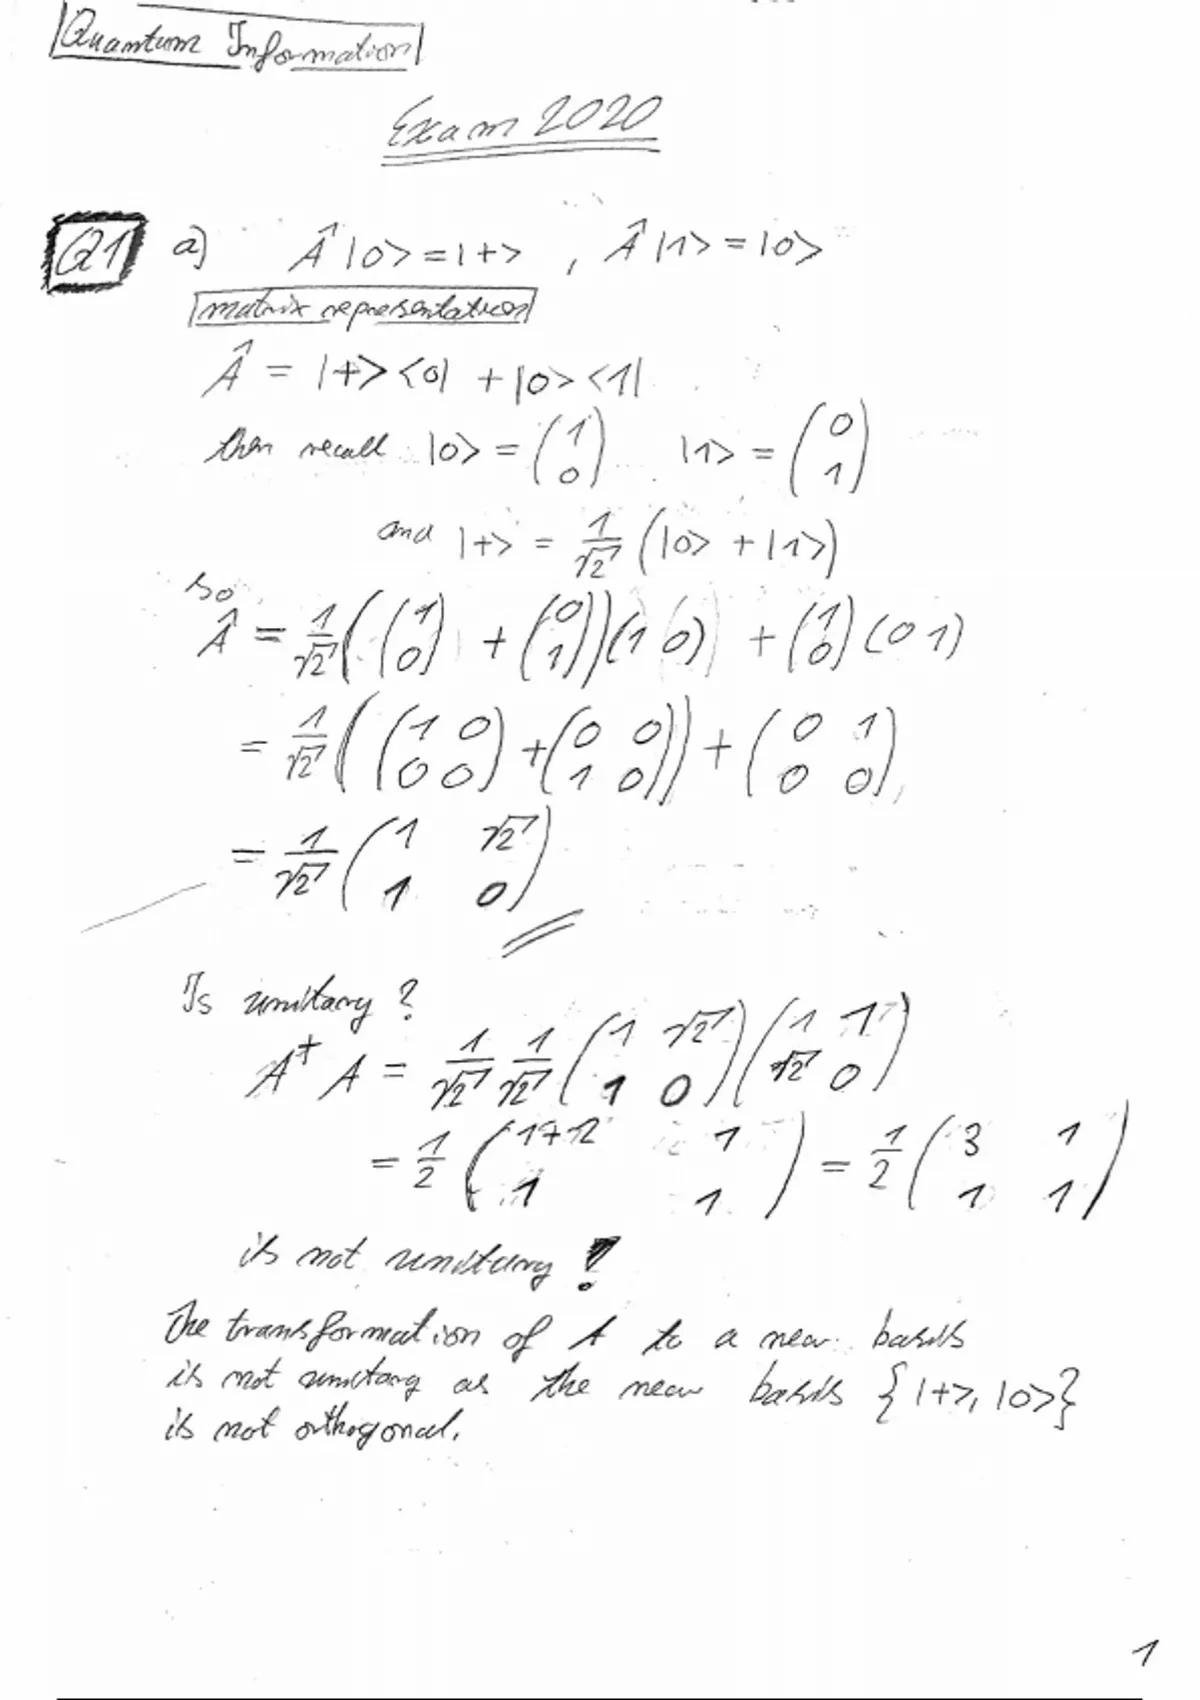 Quantum Information
Exam 2020
Q1 a) Â|0> = |+> , Â|1> = |0>
matrix representation
Â = |+><0| + |0><1|
then recall |0> = (1 0) |1> = (0 1)
and |+> = 1/√2 (|0> + |1>)
so
Â = 1/√2 ((1 0) + (0 1))(1 0) + (1 0)(0 1)
= 1/√2 ((1 0 0 0) + (0 0 1 0)) + (0 1 0 0)
= 1/√2 (1 √2 1 0)
Is unitary?
A† A = 1/√2 1/√2 (1 √2 1 0)(1 1 √2 0)
= 1/2 (1+2 1 1 1) = 1/2 (3 1 1 1)
is not unitary!
The transformation of A to a new basis
is not unitary as the new basis {|+>, |0>}
is not orthogonal.
1